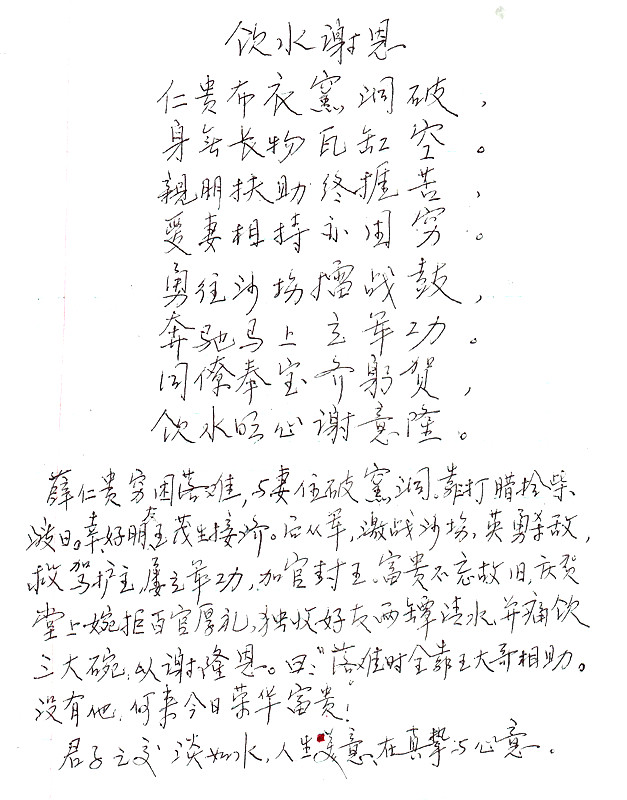 饮水谢恩
仁贵布衣窯洞破，
身无长物瓦缸空。
親朋扶助终捱苦，
爱妻相持亦困穷。
勇往沙场擂战鼓，
奔驰马上立军功。
同僚奉宝齐躬贺，
饮水明心谢意隆。
薛仁贵穷困落难，与妻住破窯洞、靠打腊拾柴
渡日。幸好朋友王茂生接济。后从军，激战沙场，英勇杀敌，
救驾护主，屡立军功，加官封王、富贵不忘故旧，庆贺
堂上婉拒百官厚礼，独收好友两罈清水、并痛饮
三大碗，以谢隆恩。曰：“落难时全靠王大哥相助。
没有他，何来今日荣华富贵！”
君子之交淡如水，人生美意在真挚与心意。